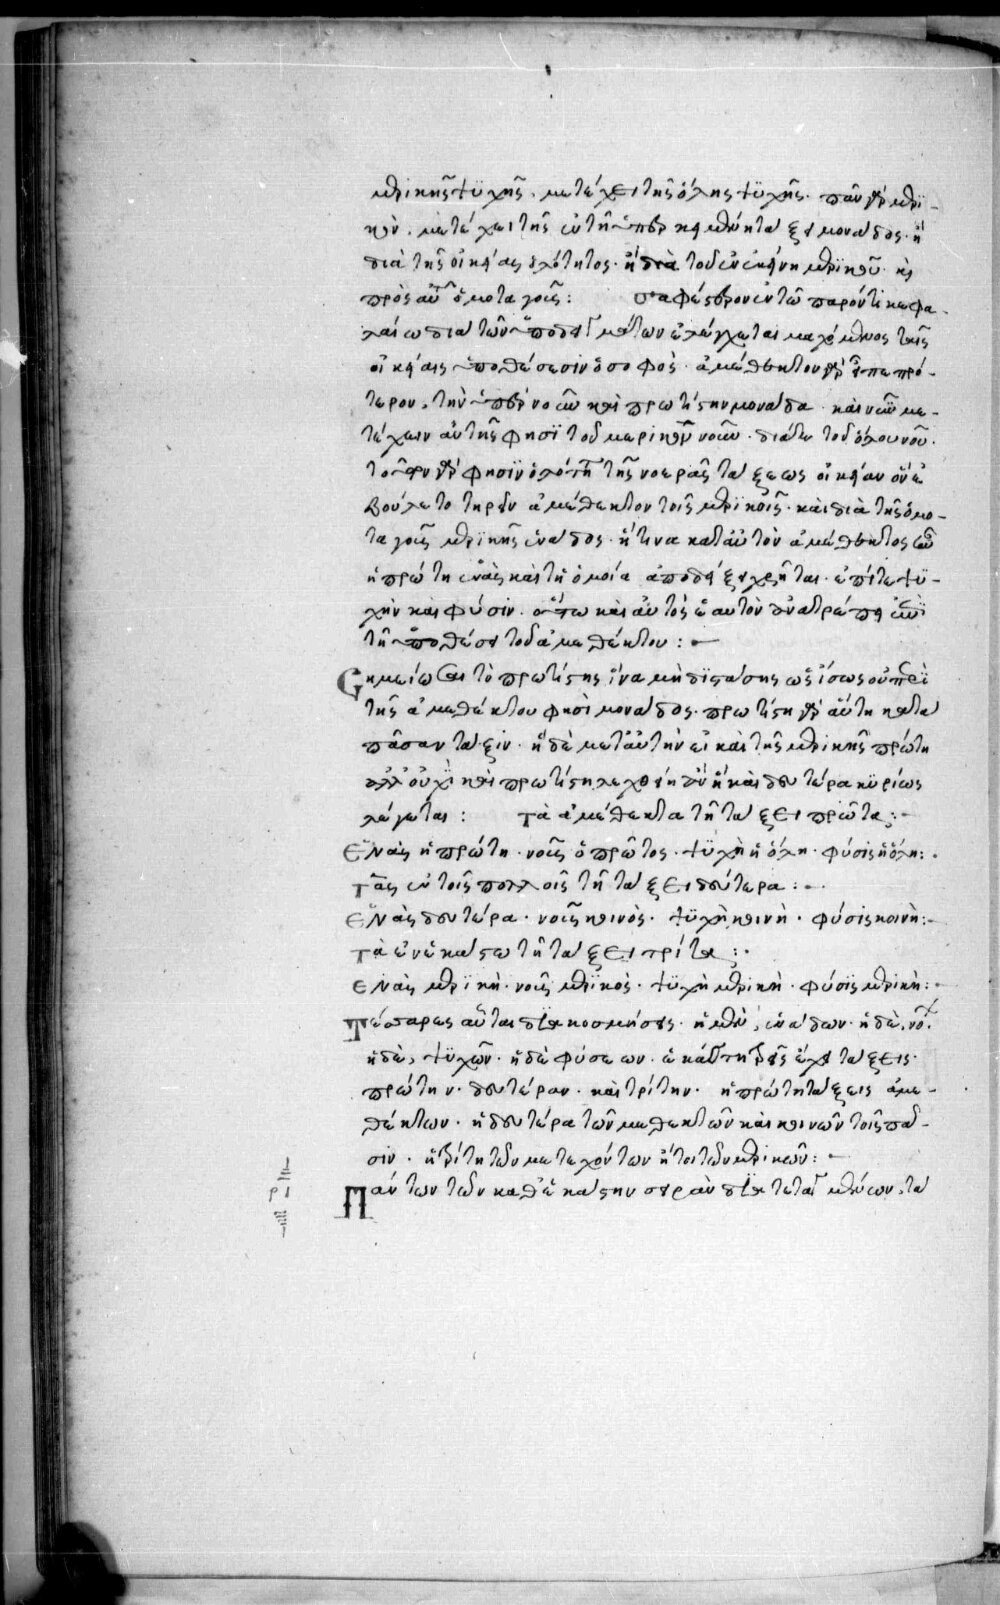 μερικῆς ψυχῆς. μετέχει τῆς ὅλης ψυχῆς. πᾶν γὰρ μερι-
κὸν. μετέχει τῆς ἐν τῇ ὑπὲρ κειμένη τάξει μονάδος. ἢ
διὰ τῆς οἰκείας ὁλότητος. ἢ διὰ τοῦ ἐν ἐκείνη μερικοῦ καὶ
πρὸς αὐτὸ ὁμοταγοῦς: σαφέστερον ἐν τῷ παρόντι κεφα-
λαίω διὰ τῶν ὑποδειγμάτων ἐλέγχεται μαχόμενος ταῖς
οἰκείαις ὑποθέσεσιν ὁ σοφός. ἀμέθεκτον γὰρ εἶπε πρό-
τερον, τὴν ὑπὲρ νοῦν καὶ πρωτίστην μονάδα. καὶ νῦν με-
τέχειν αὐτῆς φησὶ τοῦ μερικὸν νοῦν. διά τε τοῦ ὅλου νοῦ.
τοῦτον γὰρ φησὶν ὁλότητα τῆς νοερᾶς τάξεως οἰκείαν ὃν ἐ
βούλετο τηρεῖν ἀμέθεκτον τοῖς μερικοῖς. καὶ διὰ τῆς ὁμο-
ταγοῦς μερικῆς ἑνάδος. ἥτινα κατ' αὐτὸν ἀμέθεκτος ἦν
ἡ πρώτη ἑνὰς καὶ τῇ ὁμοία ἀποδείξει χρῆται. ἐπί τε ψυ-
χὴν καὶ φύσιν. οὕτω καὶ αὐτὸς ἑαυτὸν ἀνατρέπει ἐπὶ
τῇ ὑποθέσει τοῦ ἀμεθέκτου:
Σημείωσαι τὸ πρωτίστης ἵνα μὴ διστάσης ὡς ἴσως οὐ περὶ
τῆς ἀμεθέκτου φησὶ μονάδος. πρωτίστη γὰρ αὕτη κατὰ
πᾶσαν τάξιν. ἡ δὲ μετ' αὐτὴν εἰ καὶ τῆς μερικῆς πρώτη
ἀλλ' οὐχὶ καὶ πρωτίστη λεχθείη ἂν ἡ καὶ δευτέρα κυρίως
λέγεται: τὰ ἀμέθεκτα τῇ τάξει πρῶτα:
Ἑνὰς ἡ πρώτη. νοῦς ὁ πρῶτος. ψυχὴ ἡ ὅλη. φύσις ἡ ὅλη:
τὰς ἐν τοῖς πολλοῖς τῇ τάξει δεύτερα:
Ἑνὰς δευτέρα. νοῦς κοινὸς. ψυχὴ κοινὴ. φύσις κοινὴ:
τὰ ἐν ἑκάστω τῇ τάξει τρίτα:
Ἑνὰς μερικὴ. νοῦς μερικὸς. ψυχὴ μερικὴ. φύσις μερικὴ:
Τέσσαρες αὗται διακοσμήσεις. ἡ μὲν, ἑνάδων. ἡ δὲ, νόων.
ἡ δὲ, ψυχῶν. ἡ δὲ φύσεων. ἑκάστη τρεῖς ἔχει τάξεις.
πρώτην. δευτέραν. καὶ τρίτην. ἡ πρώτη τάξεις ἀμε-
θέκτων. ἡ δευτέρα τῶν μεθεκτῶν καὶ κοινῶν τοῖς πᾶ-
σιν. ἡ τρίτη τῶν μετεχόντων ἤτοι τῶν μερικῶν:
ρι Πάντων τῶν καθ' ἑκάστην σειρὰν διατεταγμένων, τὰ